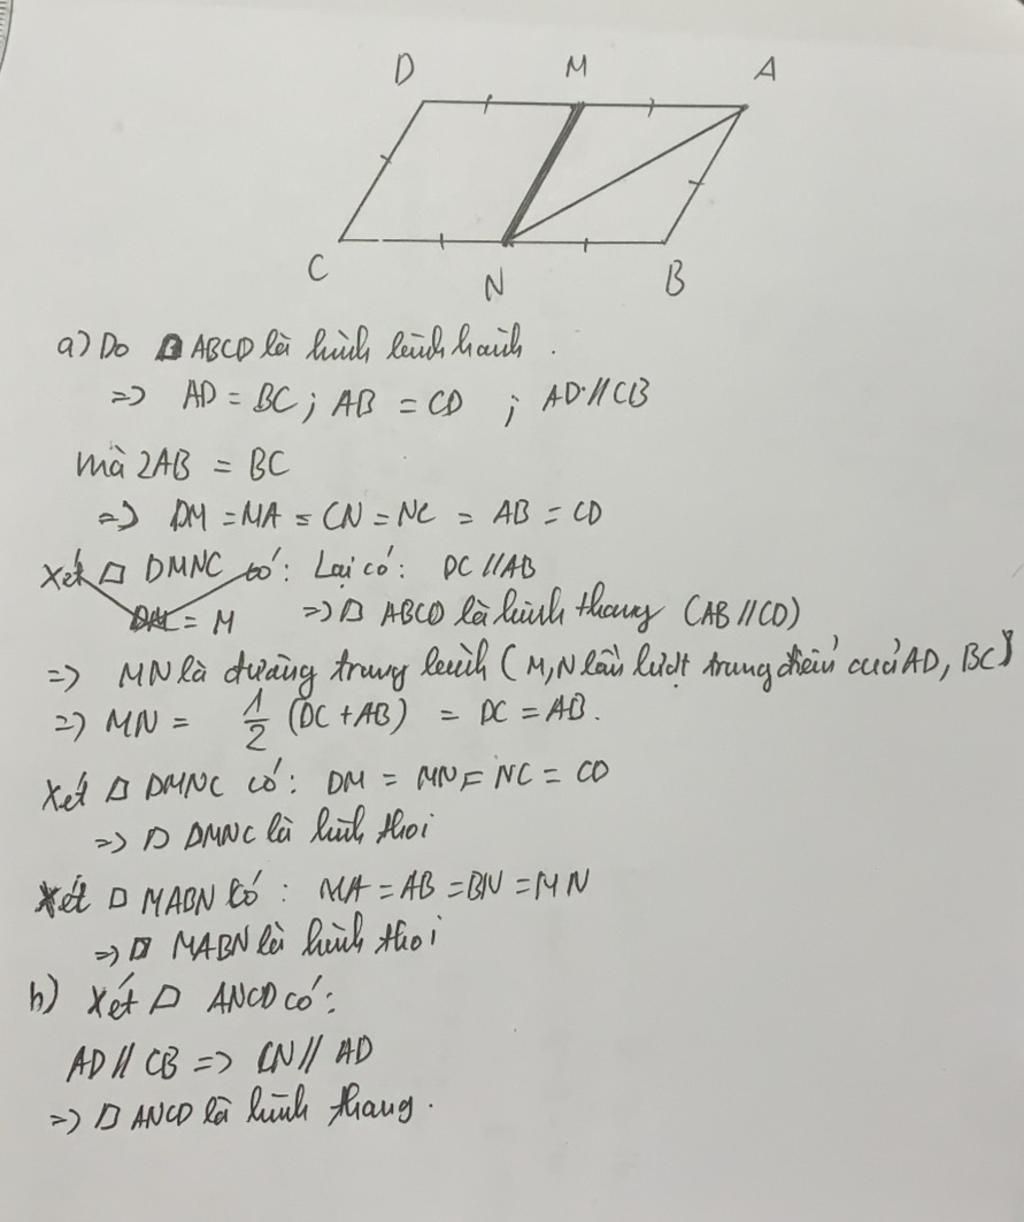 D M A
C N B
a) Do ▱ ABCD là hình bình hành .
=> AD = BC ; AB = CD ; AD // CB
mà 2AB = BC
=> DM = MA = CN = NC = AB = CD
Xét ▱ DMNC có: Lại có: DC // AB
= M => ▱ ABCD là hình thang (AB // CD)
=> MN là đường trung bình (M, N lần lượt trung điểm của AD, BC)
=> MN = 1/2 (DC + AB) = DC = AB.
Xét ▱ DMNC có: DM = MN = NC = CD
=> ▱ DMNC là hình thoi
Xét ▱ MABN có : MA = AB = BN = MN
=> ▱ MABN là hình thoi
b) Xét ▱ ANCD có:
AD // CB => CN // AD
=> ▱ ANCD là hình thang.